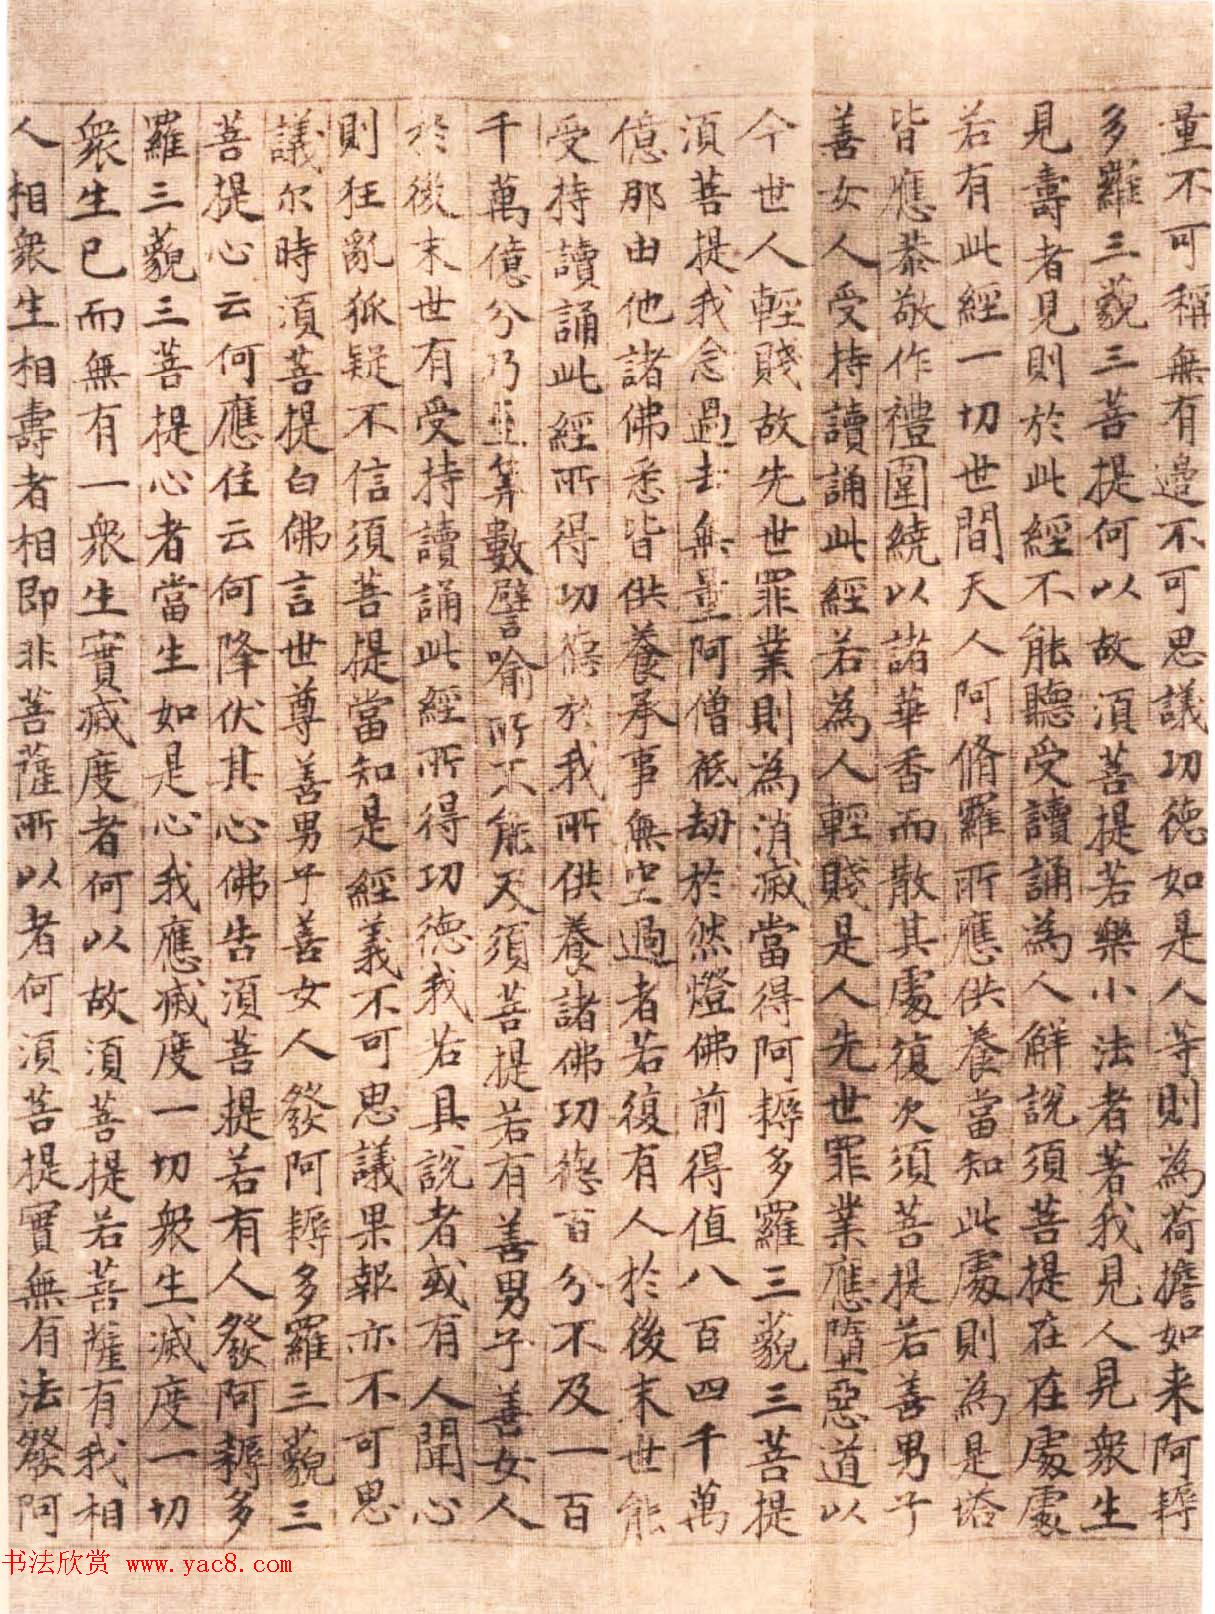 量不可稱無有邊不可思議功德如是人等則為荷擔如来阿耨
多羅三藐三菩提何以故須菩提若樂小法者著我見人見衆生
見壽者見則於此經不能聽受讀誦為人解說須菩提在在處處
若有此經一切世間天人阿脩羅所應供養當知此處則為是塔
皆應恭敬作禮圍繞以諸華香而散其處復次須菩提若善男子
善女人受持讀誦此經若為人輕賤是人先世罪業應墮惡道以
今世人輕賤故先世罪業則為消滅當得阿耨多羅三藐三菩提
須菩提我念過去無量阿僧祇劫於然燈佛前得值八百四千萬
億那由他諸佛悉皆供養承事無空過者若復有人於後末世能
受持讀誦此經所得功德於我所供養諸佛功德百分不及一百
千萬億分乃至筭數譬喻所不能及須菩提若有善男子善女人
於後末世有受持讀誦此經所得功德我若具說者或有人聞心
則狂亂狐疑不信須菩提當知是經義不可思議果報亦不可思
議尔時須菩提白佛言世尊善男子善女人發阿耨多羅三藐三
菩提心云何應住云何降伏其心佛告須菩提若有人發阿耨多
羅三藐三菩提心者當生如是心我應滅度一切衆生滅度一切
衆生已而無有一衆生實滅度者何以故須菩提若菩薩有我相
人相衆生相壽者相即非菩薩所以者何須菩提實無有法發阿
书法欣赏 www.yac8.com